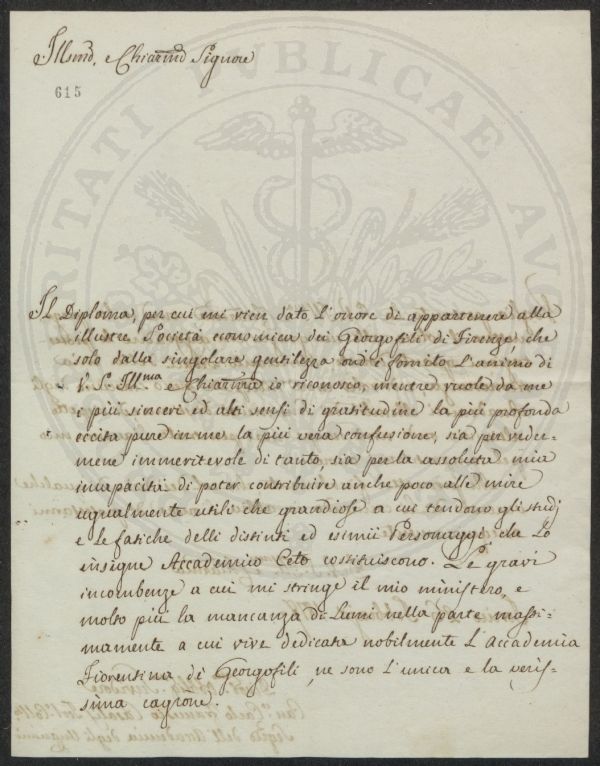 Illmo, e Chiarmo Signore
615
Il Diploma, per cui mi vien dato l'onore di appartenere alla
illustre Società economica dei Georgofili di Firenze, che
solo dalla singolare gentilezza ond'è fornito l'animo di
V. S. Illma e Chiarma io riconosco, mentre vuole da me
i più sinceri ed alti sensi di gratitudine la più profonda
eccita pure in me la più vera confusione, sia per veder-
mene immeritevole di tanto, sia per la assoluta mia
incapacità di poter contribuire anche poco alle mire
ugualmente utili che grandiose a cui tendono gli studj
e le fatiche delli distinti ed esimii Personaggi che Lo
insigne Accademico Ceto costituiscono. Le gravi
incombenze a cui mi stringe il mio ministero, e
molto più la mancanza di Lumi nella parte massi-
mamente a cui vive dedicata nobilmente l'Accademia
Fiorentina di Georgofili, ne sono l'unica e la veris-
sima cagione.
RITATI PVBLICAE AVG